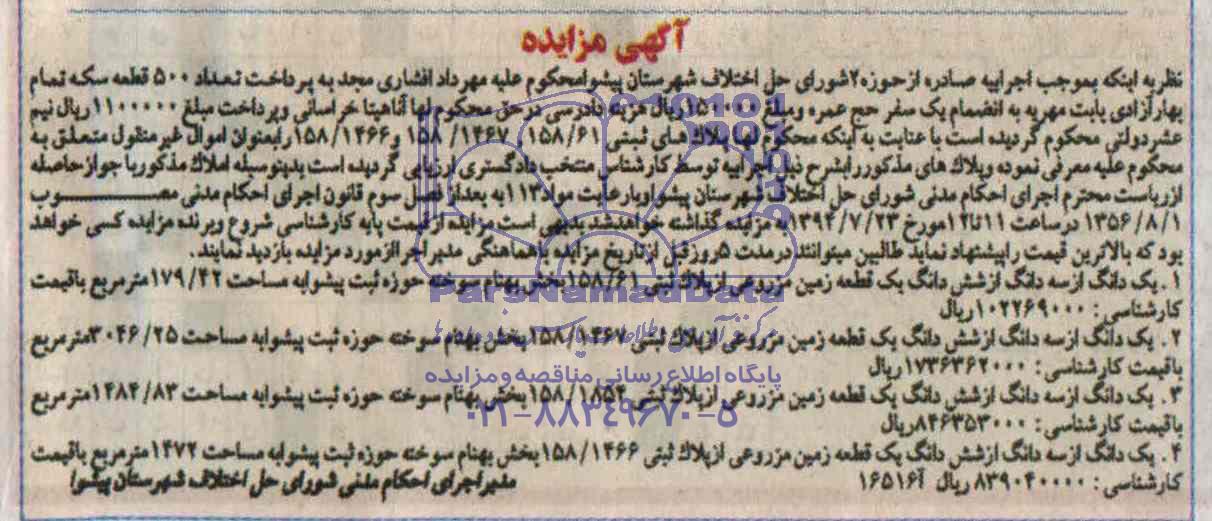 آگهی مزایده
نظر به اینکه بموجب اجراییه صادره از حوزه ۷ شورای حل اختلاف شهرستان پیشوا محکوم علیه مهرداد افشاری مجد به پرداخت تعداد ۵۰۰ قطعه سکه تمام
بهار آزادی بابت مهریه به انضمام یک سفر حج عمره و مبلغ ۱۵۰۰۰۰ ریال هزینه دادرسی در حق محکوم لها آناهیتا خراسانی و پرداخت مبلغ ۱۱۰۰۰۰۰ ریال نیم
عشر دولتی محکوم گردیده است با عنایت به اینکه محکوم لها پلاک های ثبتی ۱۵۸/۶۱، ۱۵۸/۱۴۶۷ و ۱۵۸/۱۴۶۶ را بعنوان اموال غیر منقول متعلق به
محکوم علیه معرفی نموده و پلاک های مذکور را بشرح ذیل اجراییه توسط کارشناس منتخب دادگستری ارزیابی گردیده است بدینوسیله املاک مذکور با جواز حاصله
از ریاست محترم اجرای احکام مدنی شورای حل اختلاف شهرستان پیشوا و با رعایت مواد ۱۱۳ به بعد از فصل سوم قانون اجرای احکام مدنی مصوب
۱۳۵۶/۸/۱ در ساعت ۱۱ تا ۱۲ مورخ ۱۳۹۴/۷/۲۳ به مزایده گذاشته خواهد شد بدیهی است مزایده از قیمت پایه کارشناسی شروع و برنده مزایده کسی خواهد
بود که بالاترین قیمت را پیشنهاد نماید طالبین میتوانند در مدت ۵ روز قبل از تاریخ مزایده با هماهنگی مدیر اجرا از مورد مزایده بازدید نمایند.
۱. یک دانگ از سه دانگ از شش دانگ یک قطعه زمین مزروعی از پلاک ثبتی ۱۵۸/۶۱ بخش بهنام سوخته حوزه ثبت پیشوا به مساحت ۱۷۹/۴۲ متر مربع با قیمت
کارشناسی: ۱۰۲۲۶۹۰۰۰ ریال
۲. یک دانگ از سه دانگ از شش دانگ یک قطعه زمین مزروعی از پلاک ثبتی ۱۵۸/۱۴۶۷ بخش بهنام سوخته حوزه ثبت پیشوا به مساحت ۳۰۴۶/۲۵ متر مربع
با قیمت کارشناسی: ۱۷۳۶۳۶۲۰۰۰ ریال
۳. یک دانگ از سه دانگ از شش دانگ یک قطعه زمین مزروعی از پلاک ثبتی ۱۵۸/۱۸۵۴ بخش بهنام سوخته حوزه ثبت پیشوا به مساحت ۱۴۸۴/۸۳ متر مربع
با قیمت کارشناسی: ۸۴۶۳۵۳۰۰۰ ریال
۴. یک دانگ از سه دانگ از شش دانگ یک قطعه زمین مزروعی از پلاک ثبتی ۱۵۸/۱۴۶۶ بخش بهنام سوخته حوزه ثبت پیشوا به مساحت ۱۴۷۲ متر مربع با قیمت
کارشناسی: ۸۳۹۰۴۰۰۰۰ ریال آ۱۶۵۱۶
مدیر اجرای احکام مدنی شورای حل اختلاف شهرستان پیشوا
ParsNamadData
پایگاه اطلاع رسانی مناقصه و مزایده
۰۲۱-۸۸۳۴۹۶۷۰-۵